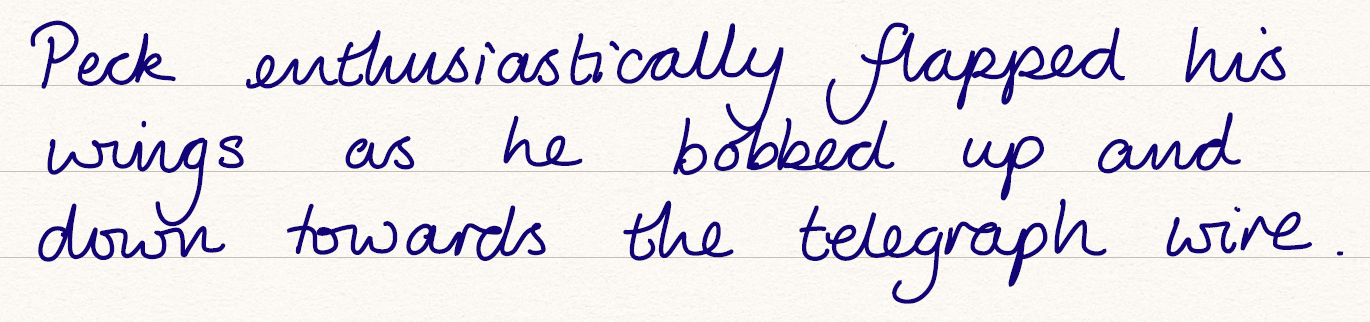 Peck enthusiastically flapped his
wings as he bobbed up and
down towards the telegraph wire.